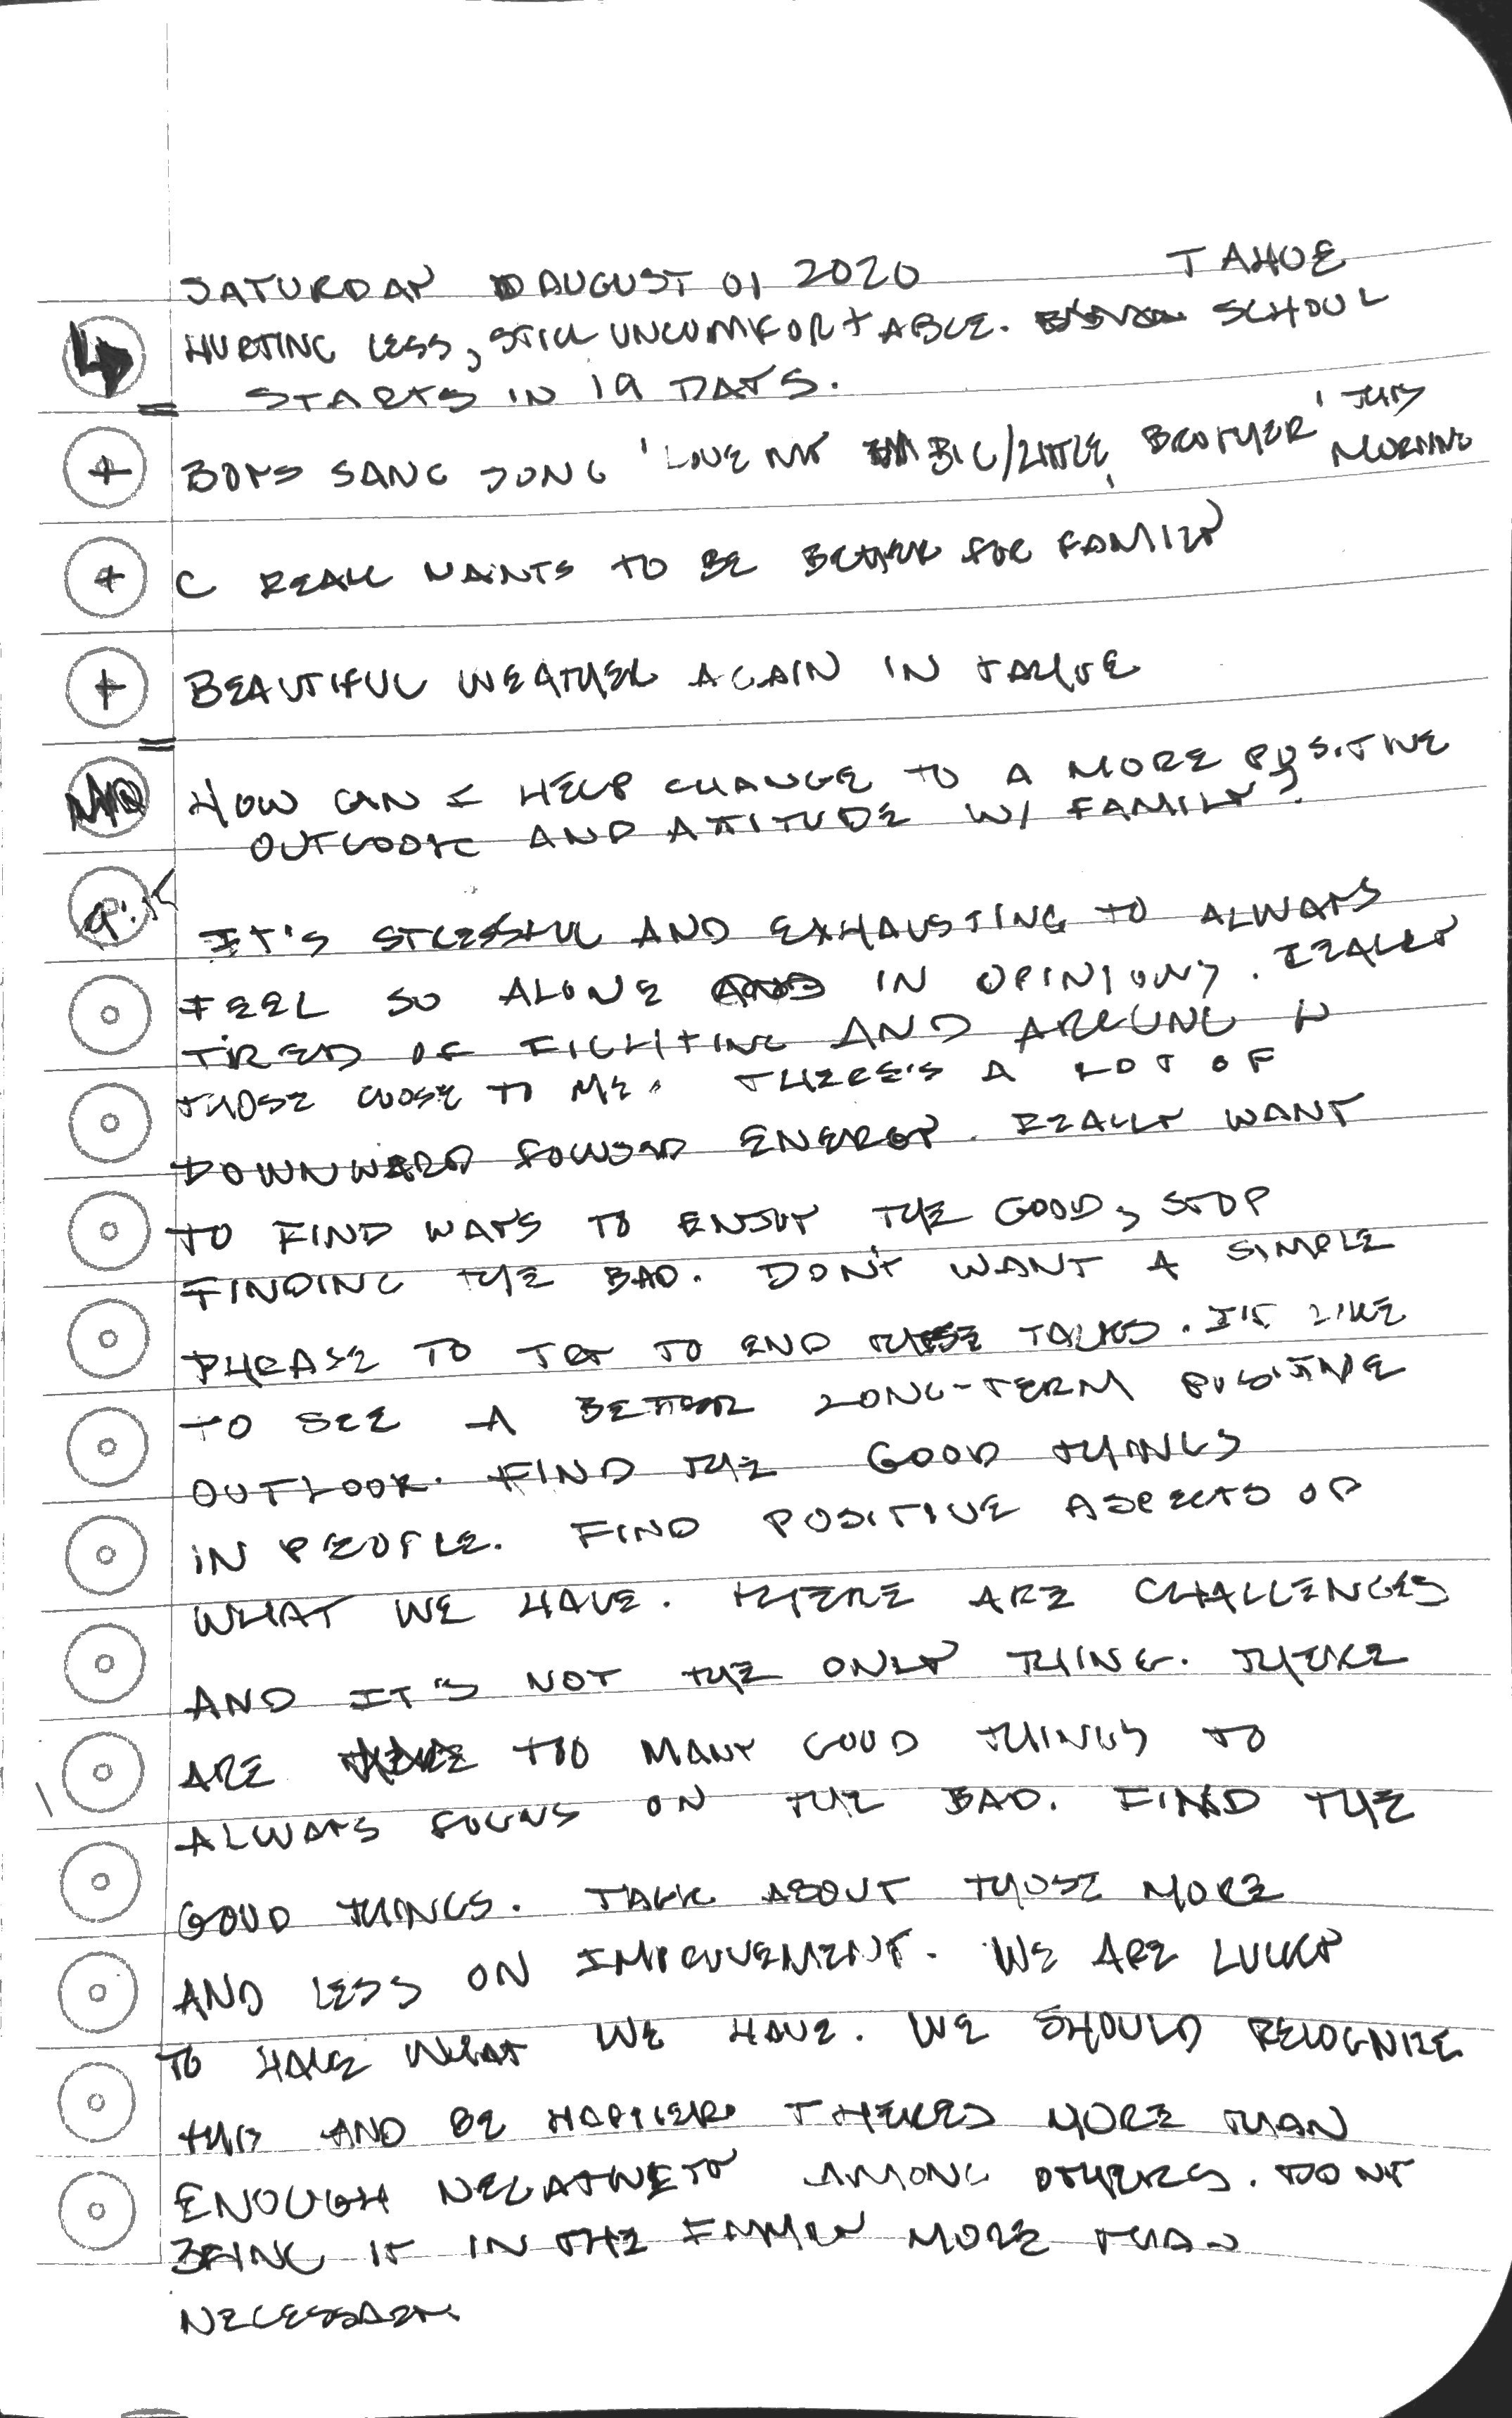 SATURDAY AUGUST 01 2020 TAHOE
HURTING LESS, STILL UNCOMFORTABLE. SCHOOL
STARTS IN 19 DAYS.
+ BOYS SANG SONG 'LOVE MY BIG/LITTLE BROTHER' THIS MORNING
+ C REALL WANTS TO BE BETTER FOR FAMILY
+ BEAUTIFUL WEATHER AGAIN IN TAHOE
HOW CAN I HELP CHANGE TO A MORE POSITIVE
OUTLOOK AND ATTITUDE W/ FAMILY?
9:15
IT'S STRESSFUL AND EXHAUSTING TO ALWAYS
FEEL SO ALONE IN OPINIONS. REALLY
TIRED OF FIGHTING AND ARGUING W
THOSE CLOSE TO ME. THERE'S A LOT OF
DOWNWARD FOCUSED ENERGY. REALLY WANT
TO FIND WAYS TO ENJOY THE GOOD, STOP
FINDING THE BAD. DON'T WANT A SIMPLE
PHRASE TO TRY TO END THESE TALKS. I'D LIKE
TO SEE A BETTER LONG-TERM POSITIVE
OUTLOOK. FIND THE GOOD THINGS
IN PEOPLE. FIND POSITIVE ASPECTS OF
WHAT WE HAVE. THERE ARE CHALLENGES
AND IT'S NOT THE ONLY THING. THERE
ARE TOO MANY GOOD THINGS TO
ALWAYS FOCUS ON THE BAD. FIND THE
GOOD THINGS. TALK ABOUT THOSE MORE
AND LESS ON IMPROVEMENT. WE ARE LUCKY
TO HAVE WHAT WE HAVE. WE SHOULD RECOGNIZE
THIS AND BE HAPPIER. THERES MORE THAN
ENOUGH NEGATIVETY AMONG OTHERS. DONT
BRING IT IN THE FAMILY MORE THAN
NECESSARY.